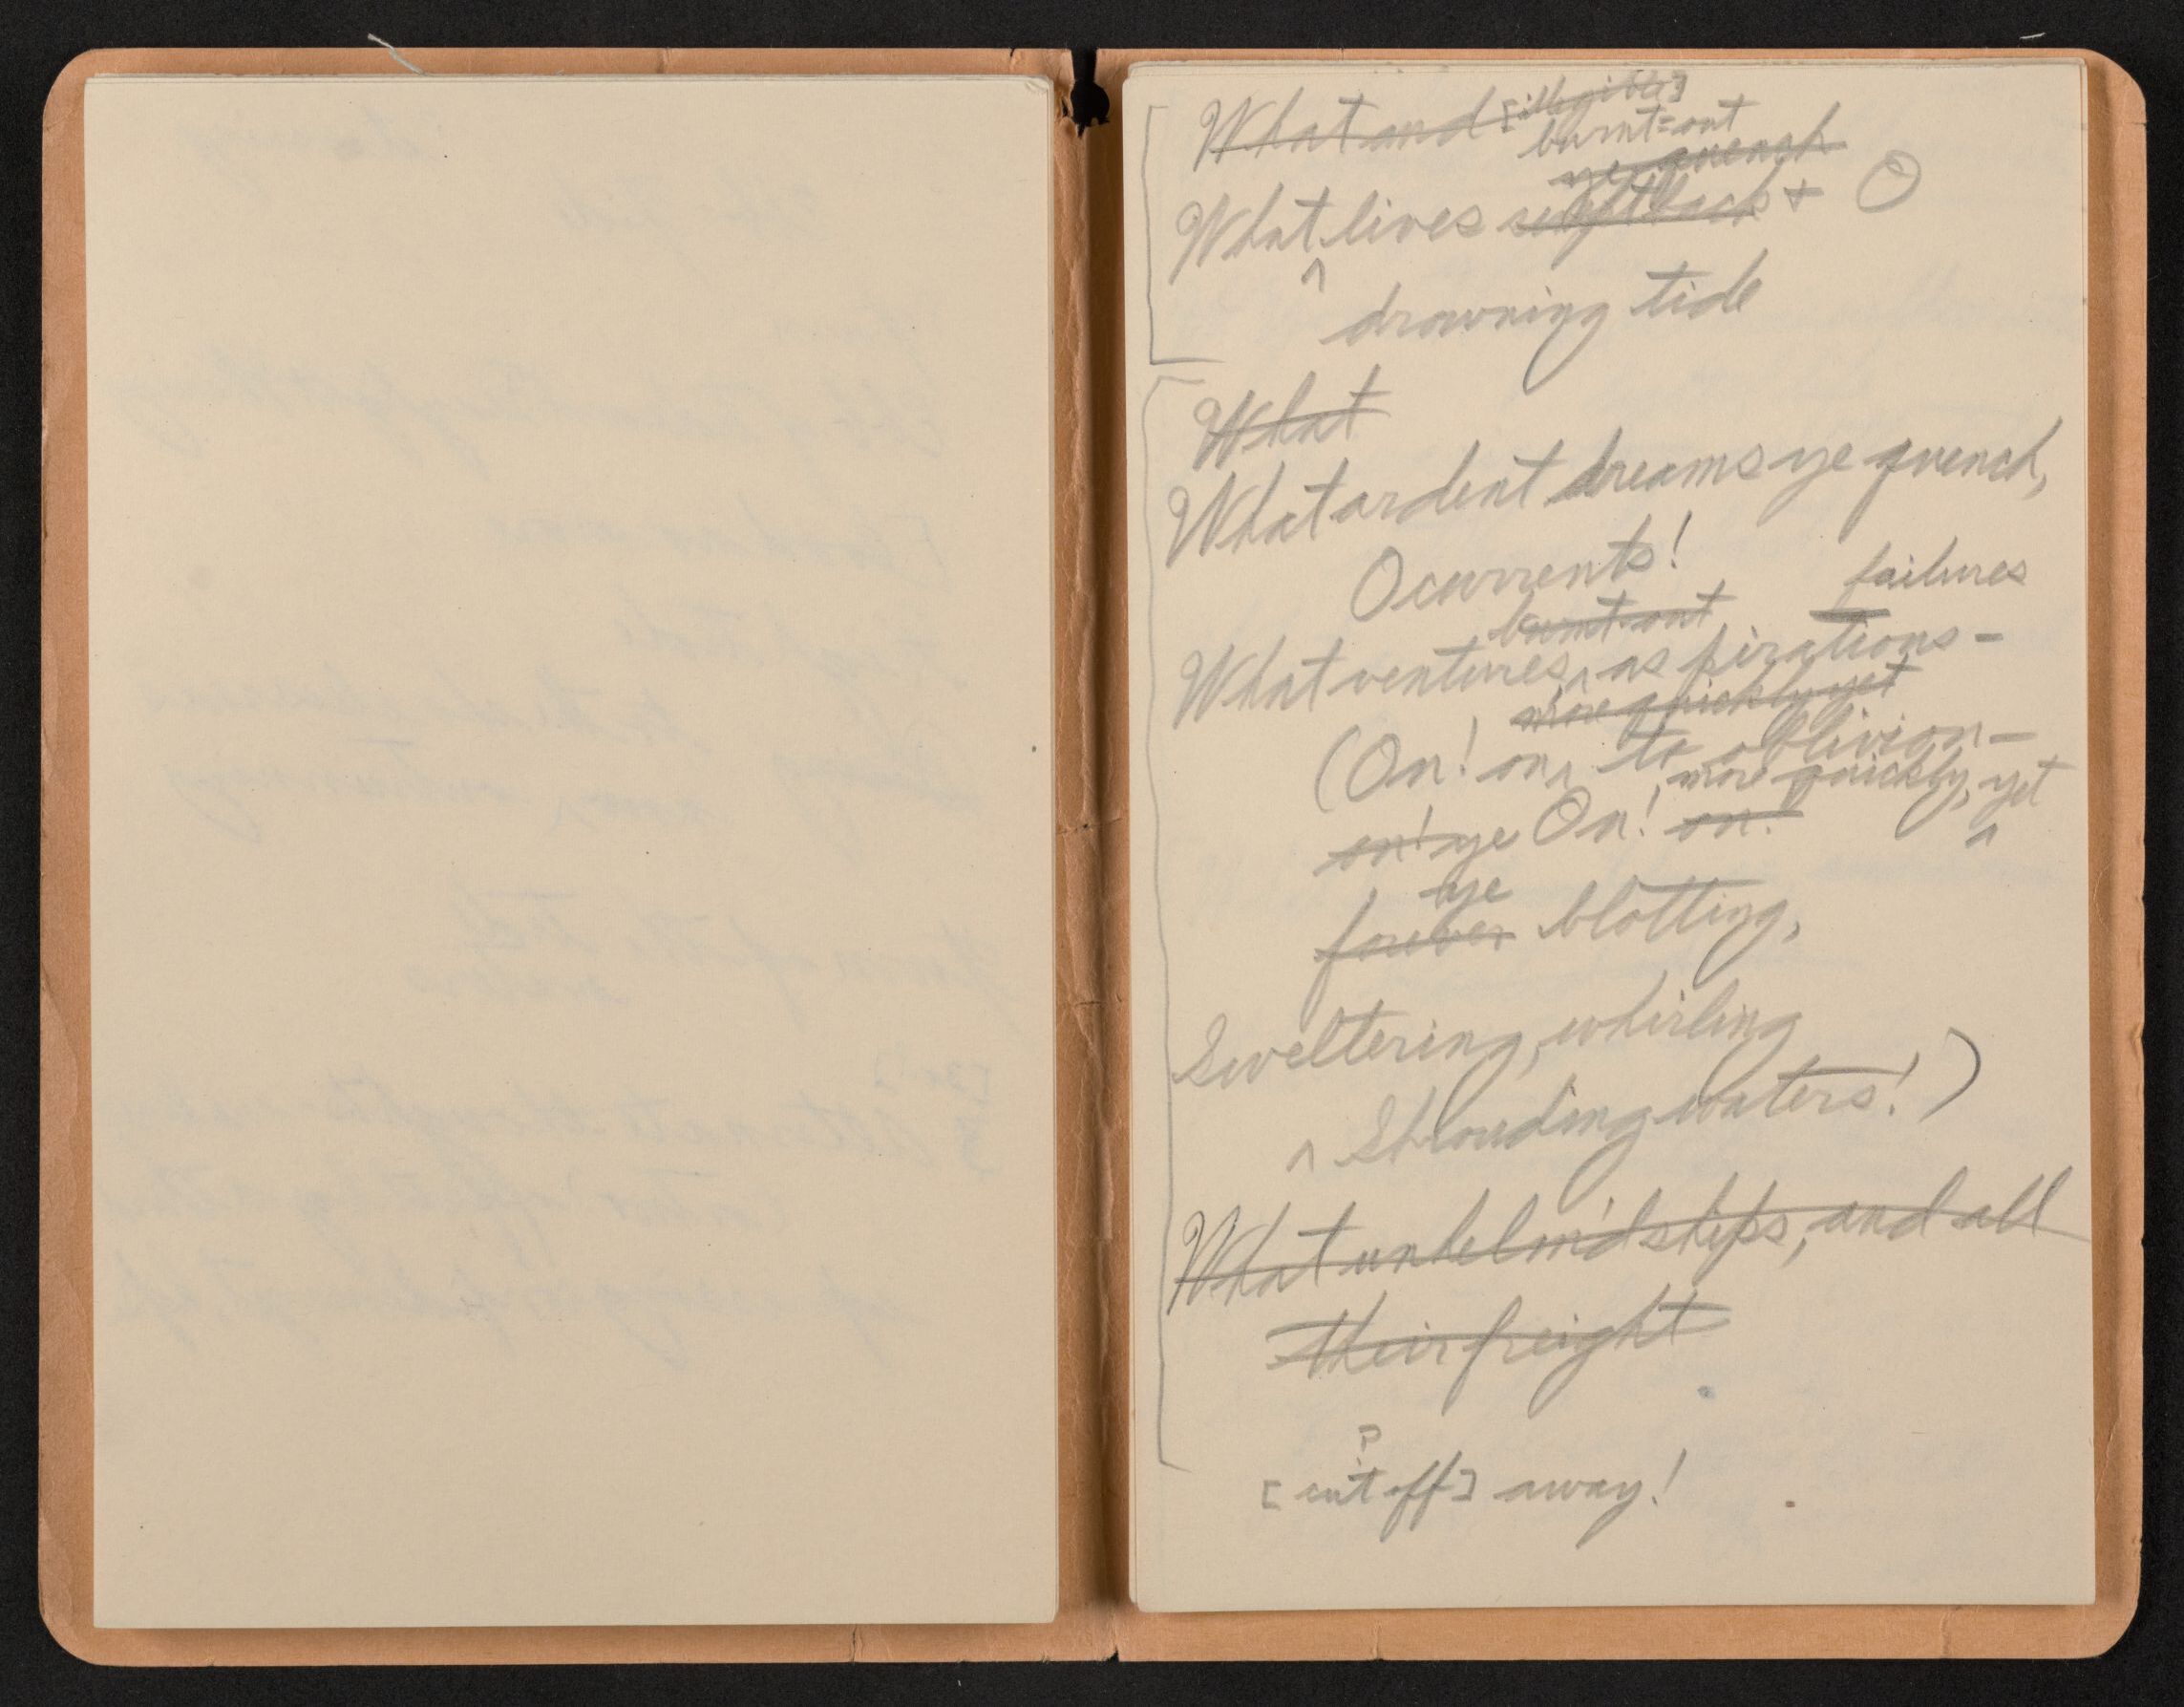 What and [illegible]
burnt=out
ye quench
What lives + O
^
drowning tide
What
What ardent dreams ye quench,
O currents!
failures
burnt out
What ventures, ^ aspirations —
more quickly yet
(On! on ^ to oblivion —
more quickly, yet
on! ye On! on! ^
ye
forever blotting,
Sweltering, whirling
^ Shrouding waters!)
What unhelm'd ships, and all
their freight
?
[cut off] away!